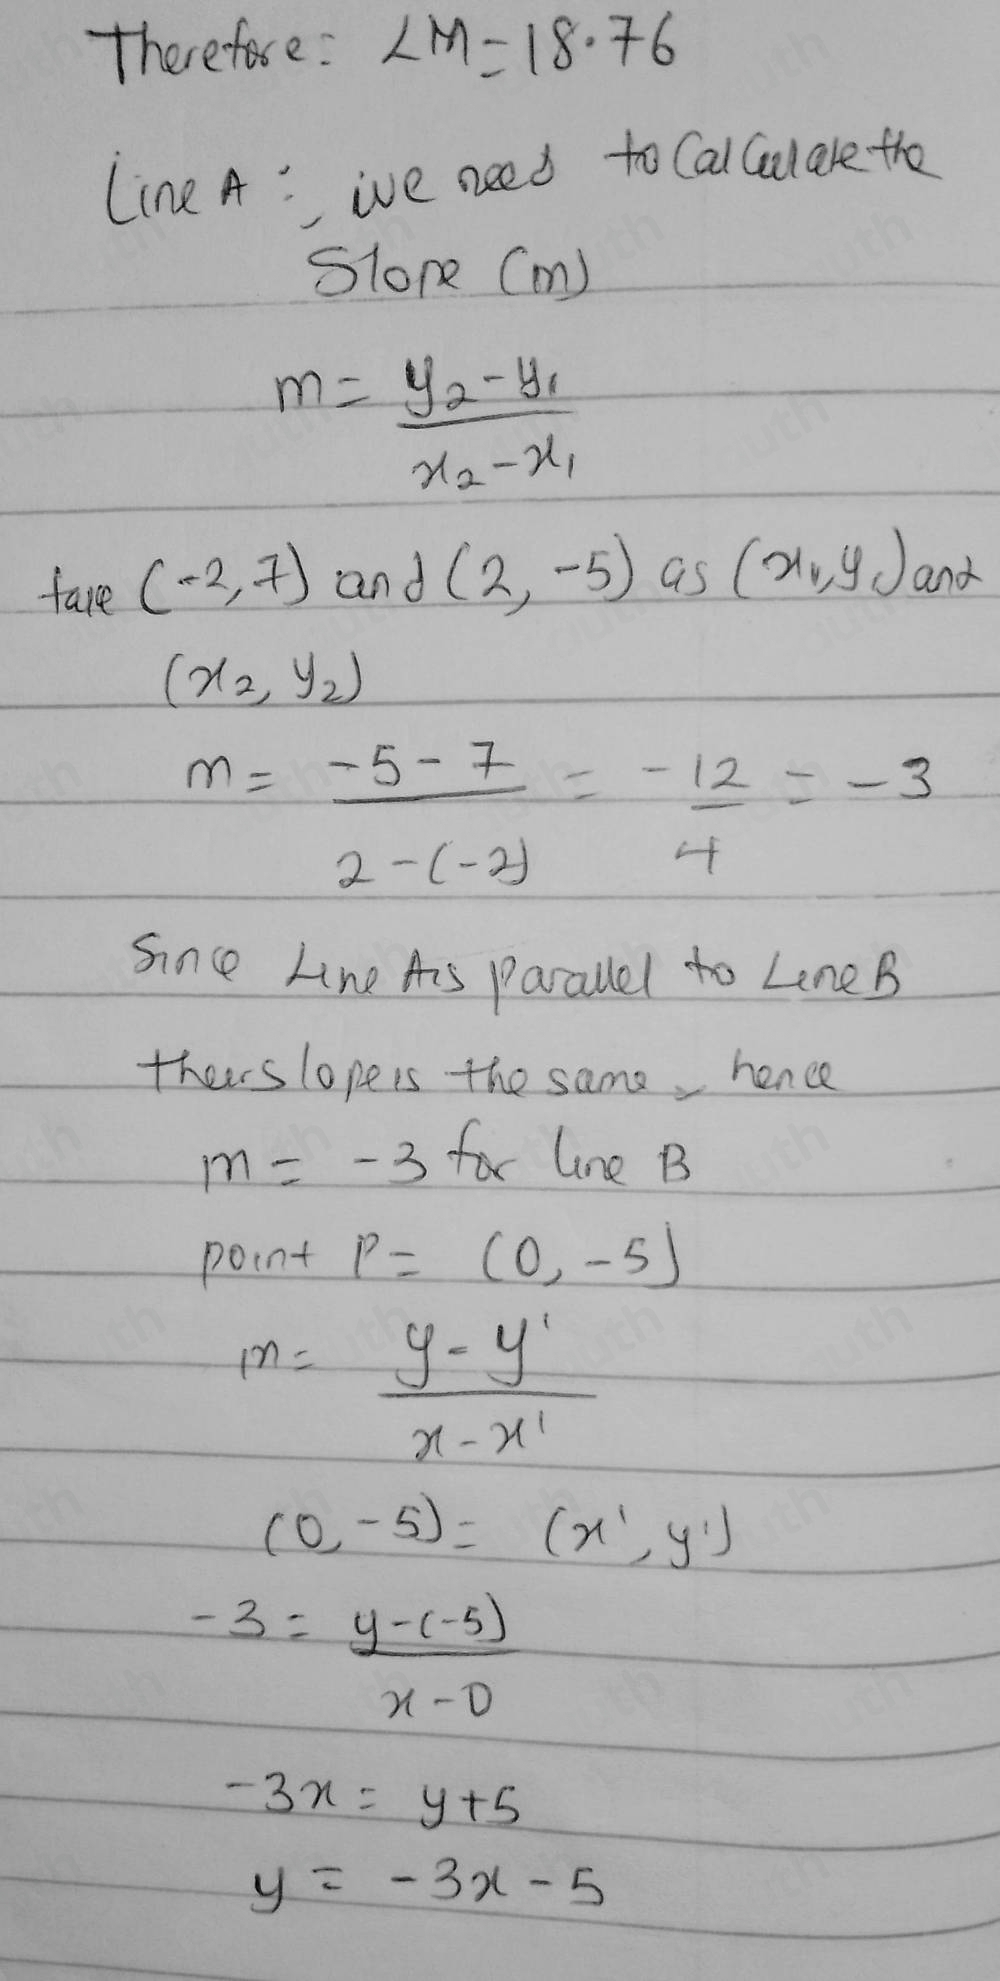 Therefore: LM = 18.76
Line A :, we need to Calculate the
Slope (m)
m = y₂ - y₁
x₂ - x₁
take (-2, 7) and (2, -5) as (x₁, y₁) and
(x₂, y₂)
m = -5 - 7 = -12 = -3
2 - (-2) 4
Since Line A is parallel to Line B
their slope is the same, hence
m = -3 for line B
point P = (0, -5)
m = y - y'
x - x'
(0, -5) = (x', y')
-3 = y - (-5)
x - 0
-3x = y + 5
y = -3x - 5